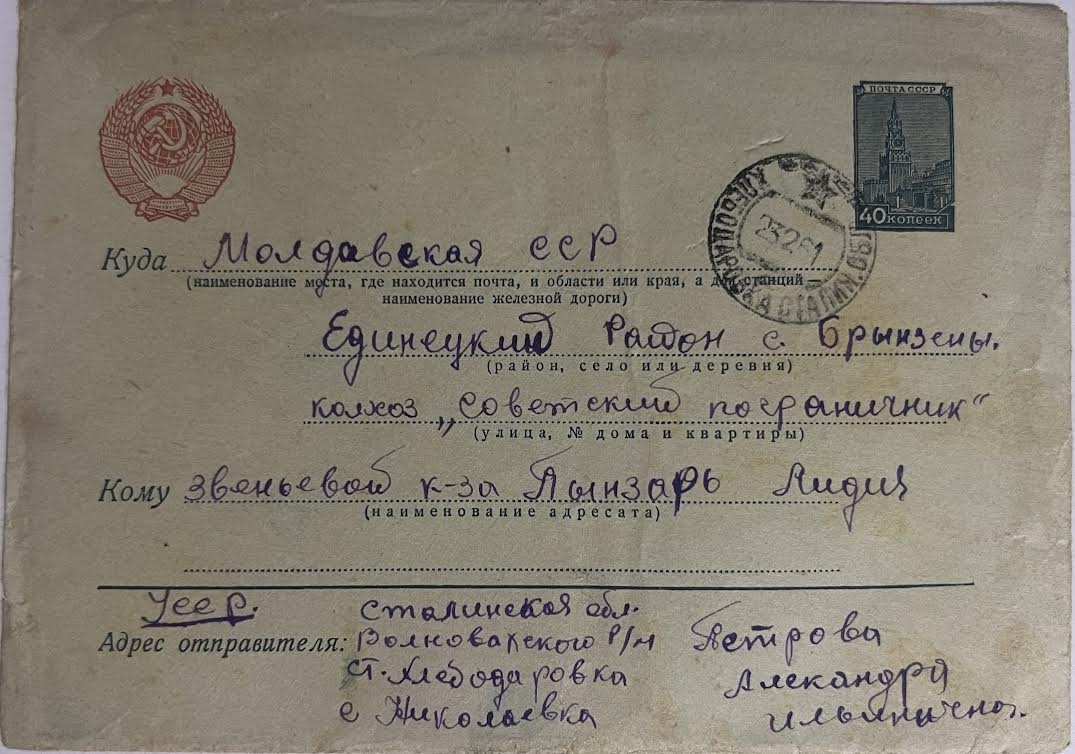 ПОЧТА СССР
40 копеек
ХЛЕБОДАРОВКА СТАЛИН. ОБЛ.
23 2 61
Куда Молдавская ССР
(наименование места, где находится почта, и области или края, а для станций —
наименование железной дороги)
Единецкий Район с. Брынзены.
(район, село или деревня)
колхоз „Советский пограничник“
(улица, № дома и квартиры)
Кому звеньевой к-за Пынзарь Лидия
(наименование адресата)
Усср. Сталинская обл.
Адрес отправителя: Волновахского р/н Петрова
ст. Хлебодаровка Александра
с Николаевка Ильинична.